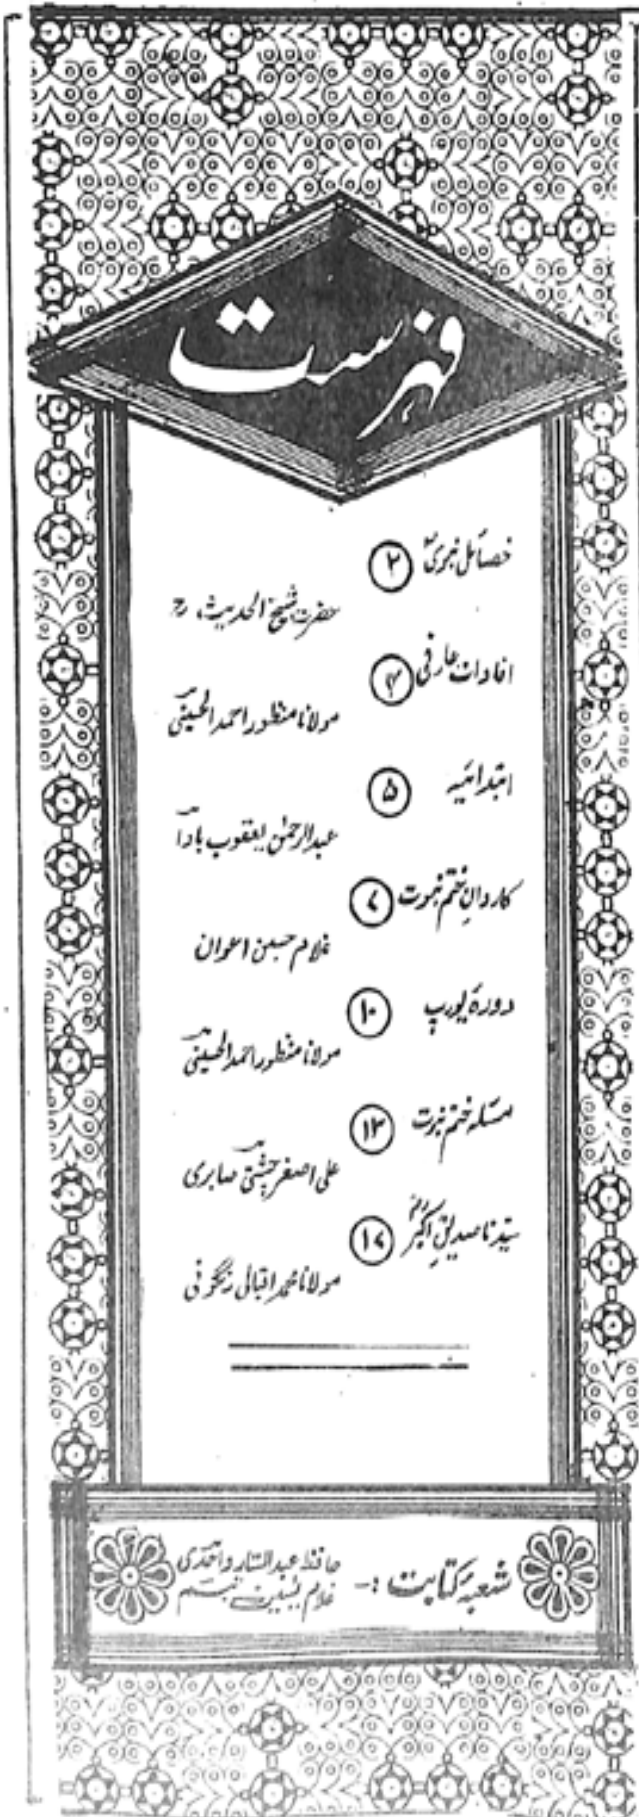 فہرست
خصائل نبویؐ ۲
حضرت شیخ الحدیث رح
افادات عارفی ۴
مولانا منظور احمد الحسینی
ابتدائیہ ۵
عبدالرحمٰن یعقوب باوا
کاروانِ ختم نبوت ۷
غلام حسین اعوان
دورۂ یورپ ۱۰
مولانا منظور احمد الحسینی
مسئلہ ختم نبوت ۱۳
علی اصغر چشتی صابری
سیّدنا صدیقِ اکبرؓ ۱۷
مولانا محمد اقبال رنگونی
شعبۂ کتابت :-
حافظ عبدالستار واحدی
غلام یٰسین تبسم